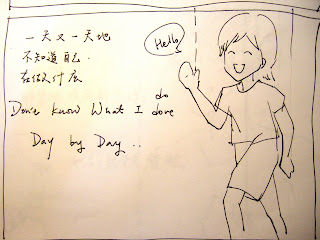 一天又一天地
不知道自己.
在做什麼
Hello
do
Don't know What I done
Day by Day..